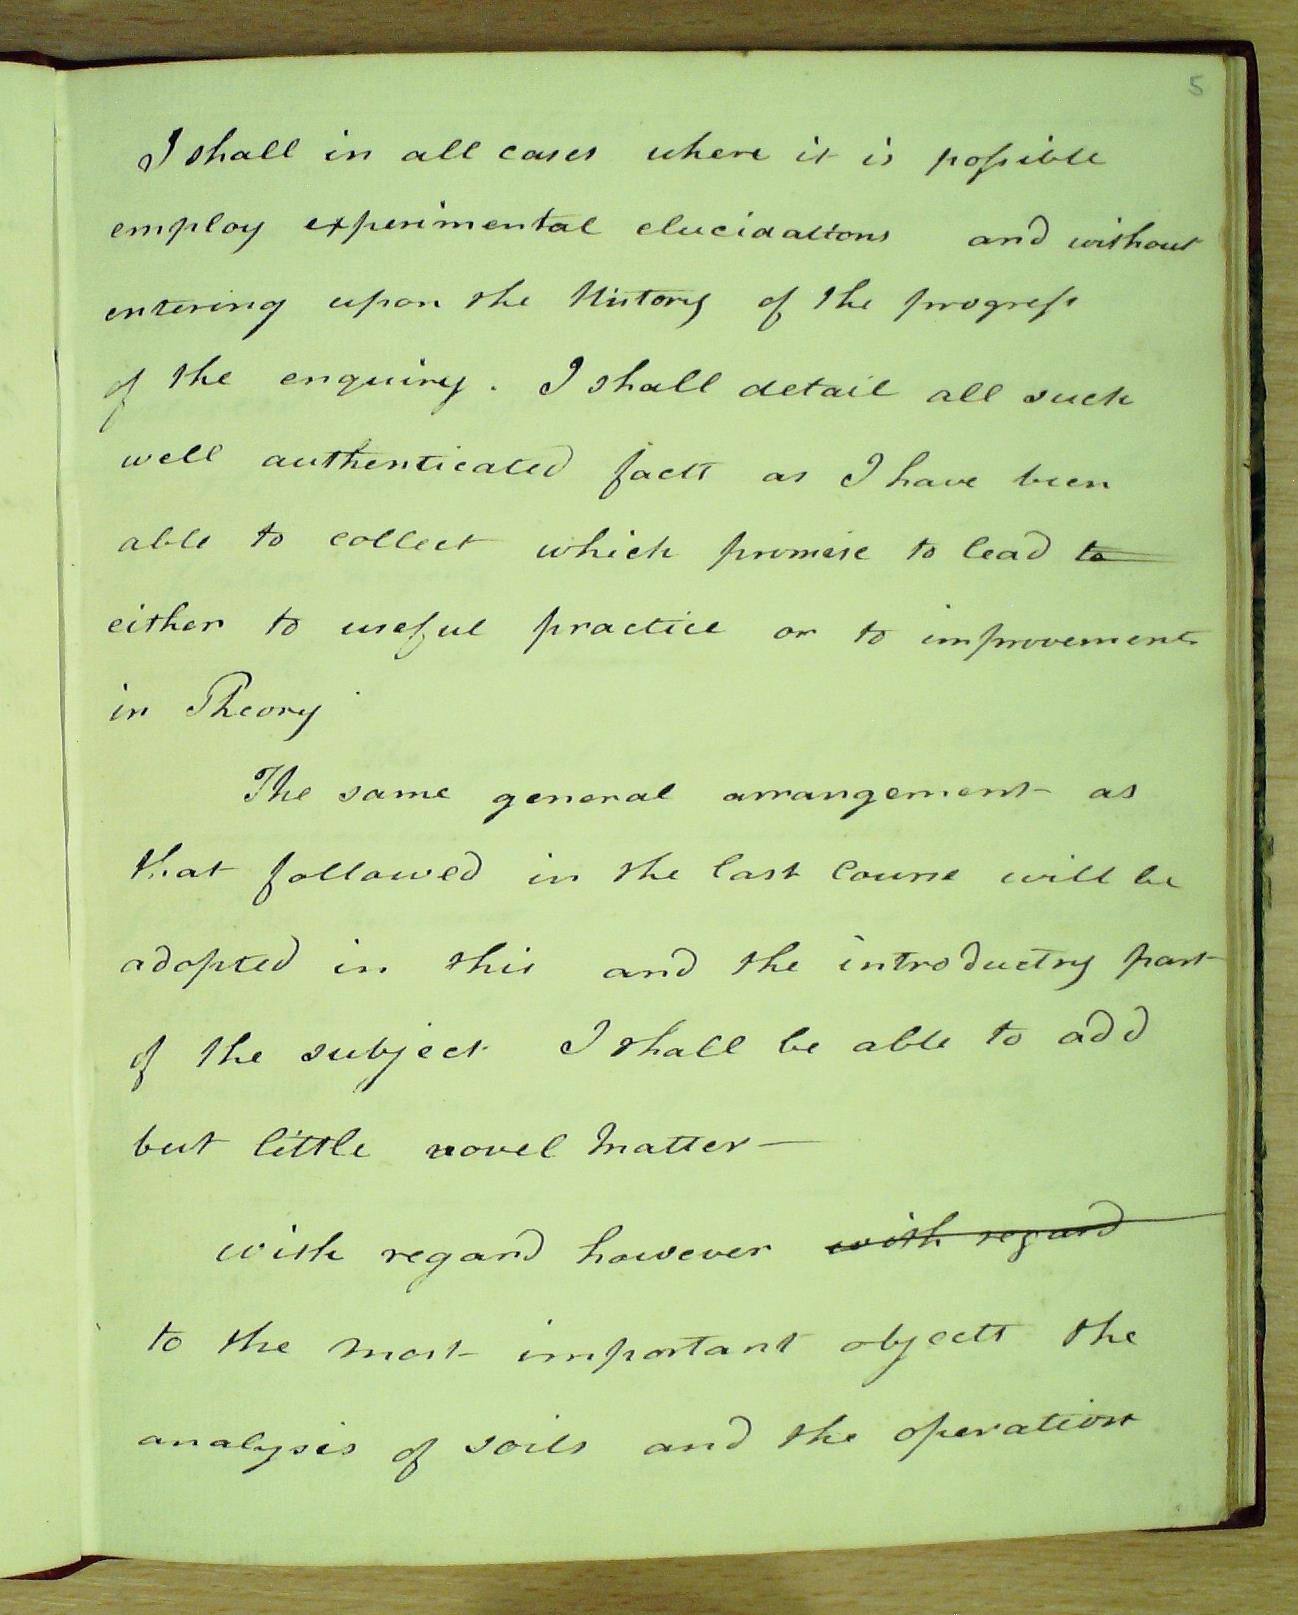 5
I shall in all cases where it is possible
employ experimental elucidations and without
entering upon the History of the progress
of the enquiry. I shall detail all such
well authenticated facts as I have been
able to collect which promise to lead to
either to useful practice or to improvement
in Theory
The same general arrangement as
that followed in the last course will be
adopted in this and the introductry part
of the subject I shall be able to add
but little novel matter —
with regard however with regard
to the most important objects the
analysis of soils and the operation